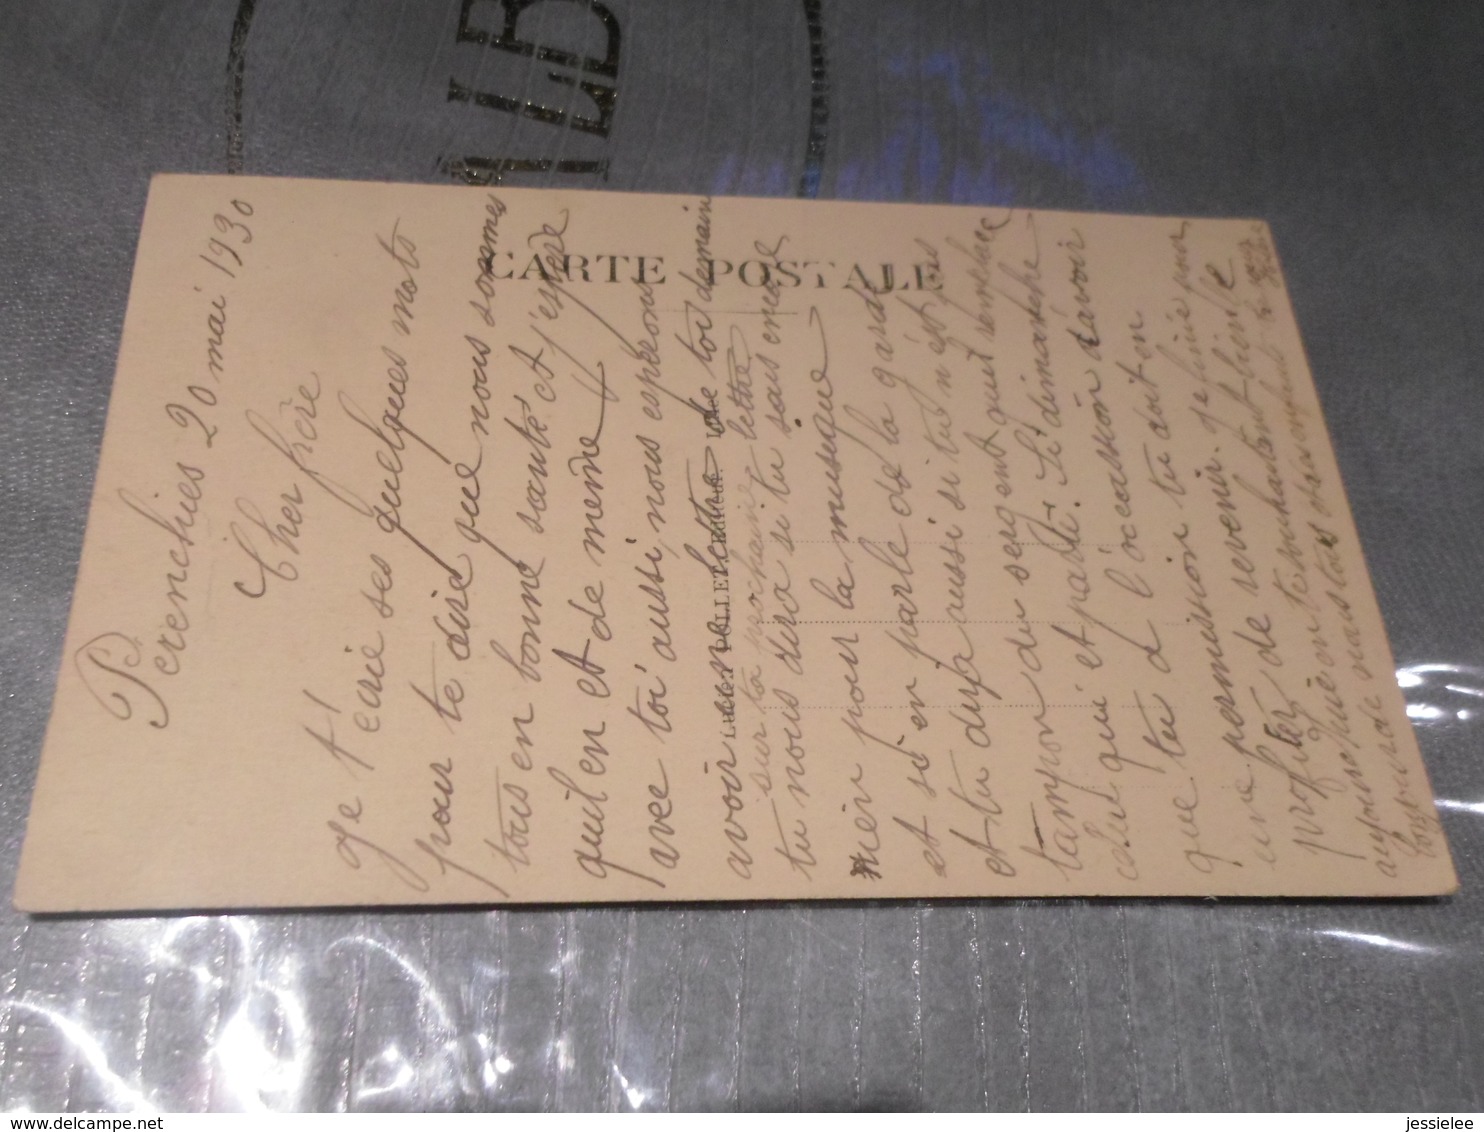 Perenchies 20 mai 1930
Cher frère
Je t'ecrie ses quelques mots
pour te dire que nous sommes
tous en bonne santé et j'espère
quil en et de meme
avec toi aussi, nous espreons
avoir une lettre de toi demain
sur ta prochaine lettre
tu nous dira si tu sais encore
rien pour la musique
et si en parle de la garde
et tu dira aussi si tu n'est pas
tampon du sergent quil remplace
celui qui et parti. Si dimanche
que tu a l'occassion d'avoir
une permission tu doit en
profiter de revenir. Je finie ma
en te souhaitant bien le
bonjour de nous tous
CARTE POSTALE
ALB
jessielee